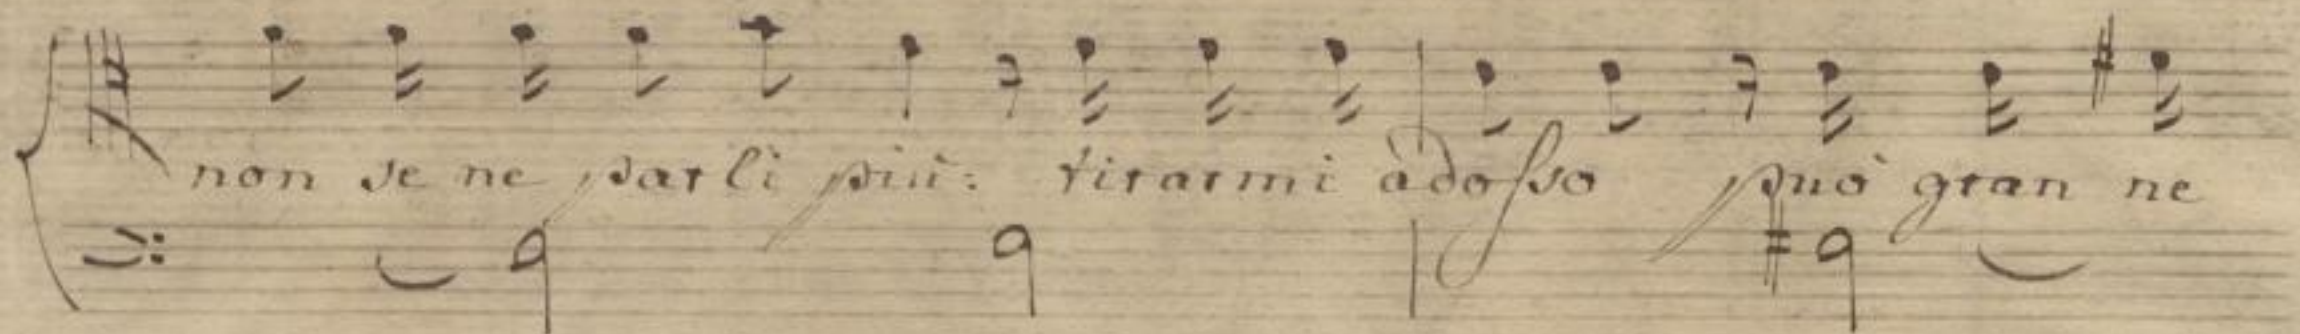 non se ne parli più: tirarmi àdosso può gran ne